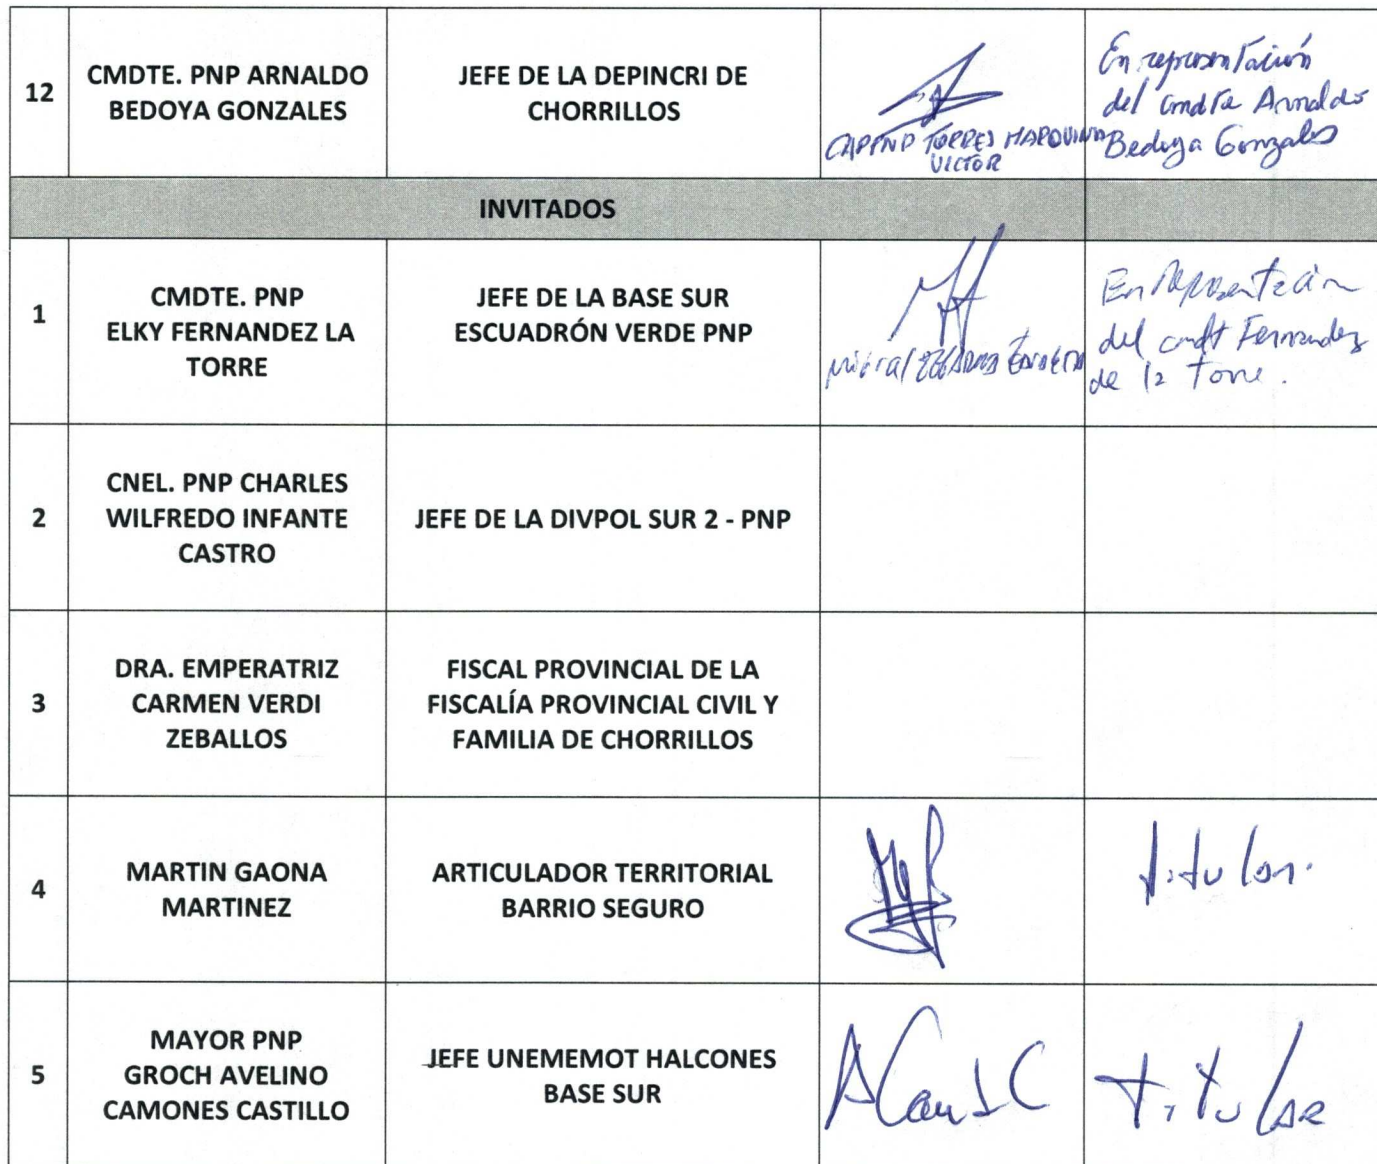 12
CMDTE. PNP ARNALDO
BEDOYA GONZALES
JEFE DE LA DEPINCRI DE
CHORRILLOS
CAP PNP TORRES MARQUINA
VICTOR
En representación
del Cmdte Arnaldo
Bedoya Gonzales
INVITADOS
1
CMDTE. PNP
ELKY FERNANDEZ LA
TORRE
JEFE DE LA BASE SUR
ESCUADRÓN VERDE PNP
En Representación
del cmdt Fernandez
de la Torre.
2
CNEL. PNP CHARLES
WILFREDO INFANTE
CASTRO
JEFE DE LA DIVPOL SUR 2 - PNP
3
DRA. EMPERATRIZ
CARMEN VERDI
ZEBALLOS
FISCAL PROVINCIAL DE LA
FISCALÍA PROVINCIAL CIVIL Y
FAMILIA DE CHORRILLOS
4
MARTIN GAONA
MARTINEZ
ARTICULADOR TERRITORIAL
BARRIO SEGURO
titular.
5
MAYOR PNP
GROCH AVELINO
CAMONES CASTILLO
JEFE UNEMEMOT HALCONES
BASE SUR
titular